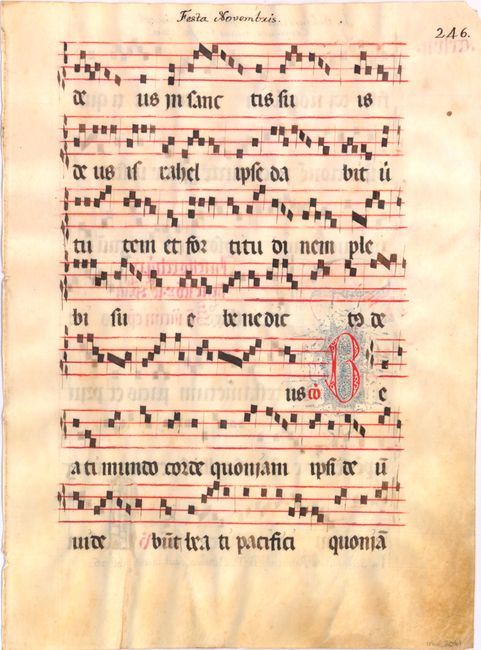 Festa Novembris.
246.
de us in sanc tis su is
de us is rahel ipse da bit ũ
tu tem et for titu di nem ple
bi su e be ne dic to de
us cō B e
a ti mundo corde quoniam ipsi de ũ
uide bũt be a ti pacifici quoniã